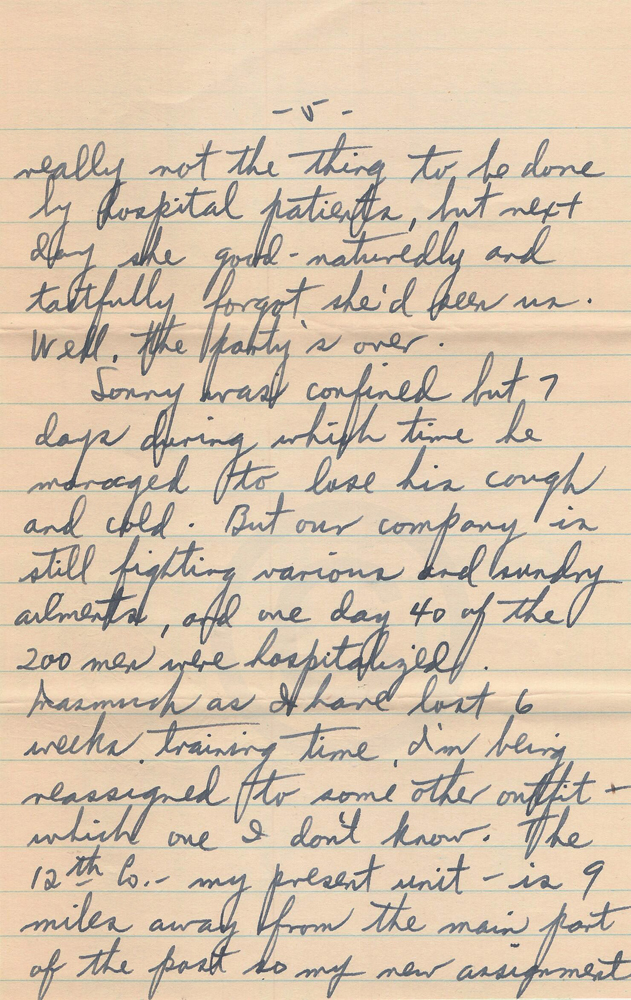 - 5 -
really not the thing to be done
by hospital patients, but next
day she good-naturedly and
tactfully forgot she'd seen us.
Well, the party's over.
Sonny was confined but 7
days during which time he
managed to lose his cough
and cold. But our company is
still fighting various and sundry
ailments, and one day 40 of the
200 men were hospitalized.
Inasmuch as I have lost 6
weeks training time, I'm being
reassigned to some other outfit -
which one I don't know. The
12th Co. - my present unit - is 9
miles away from the main part
of the post so my new assignment